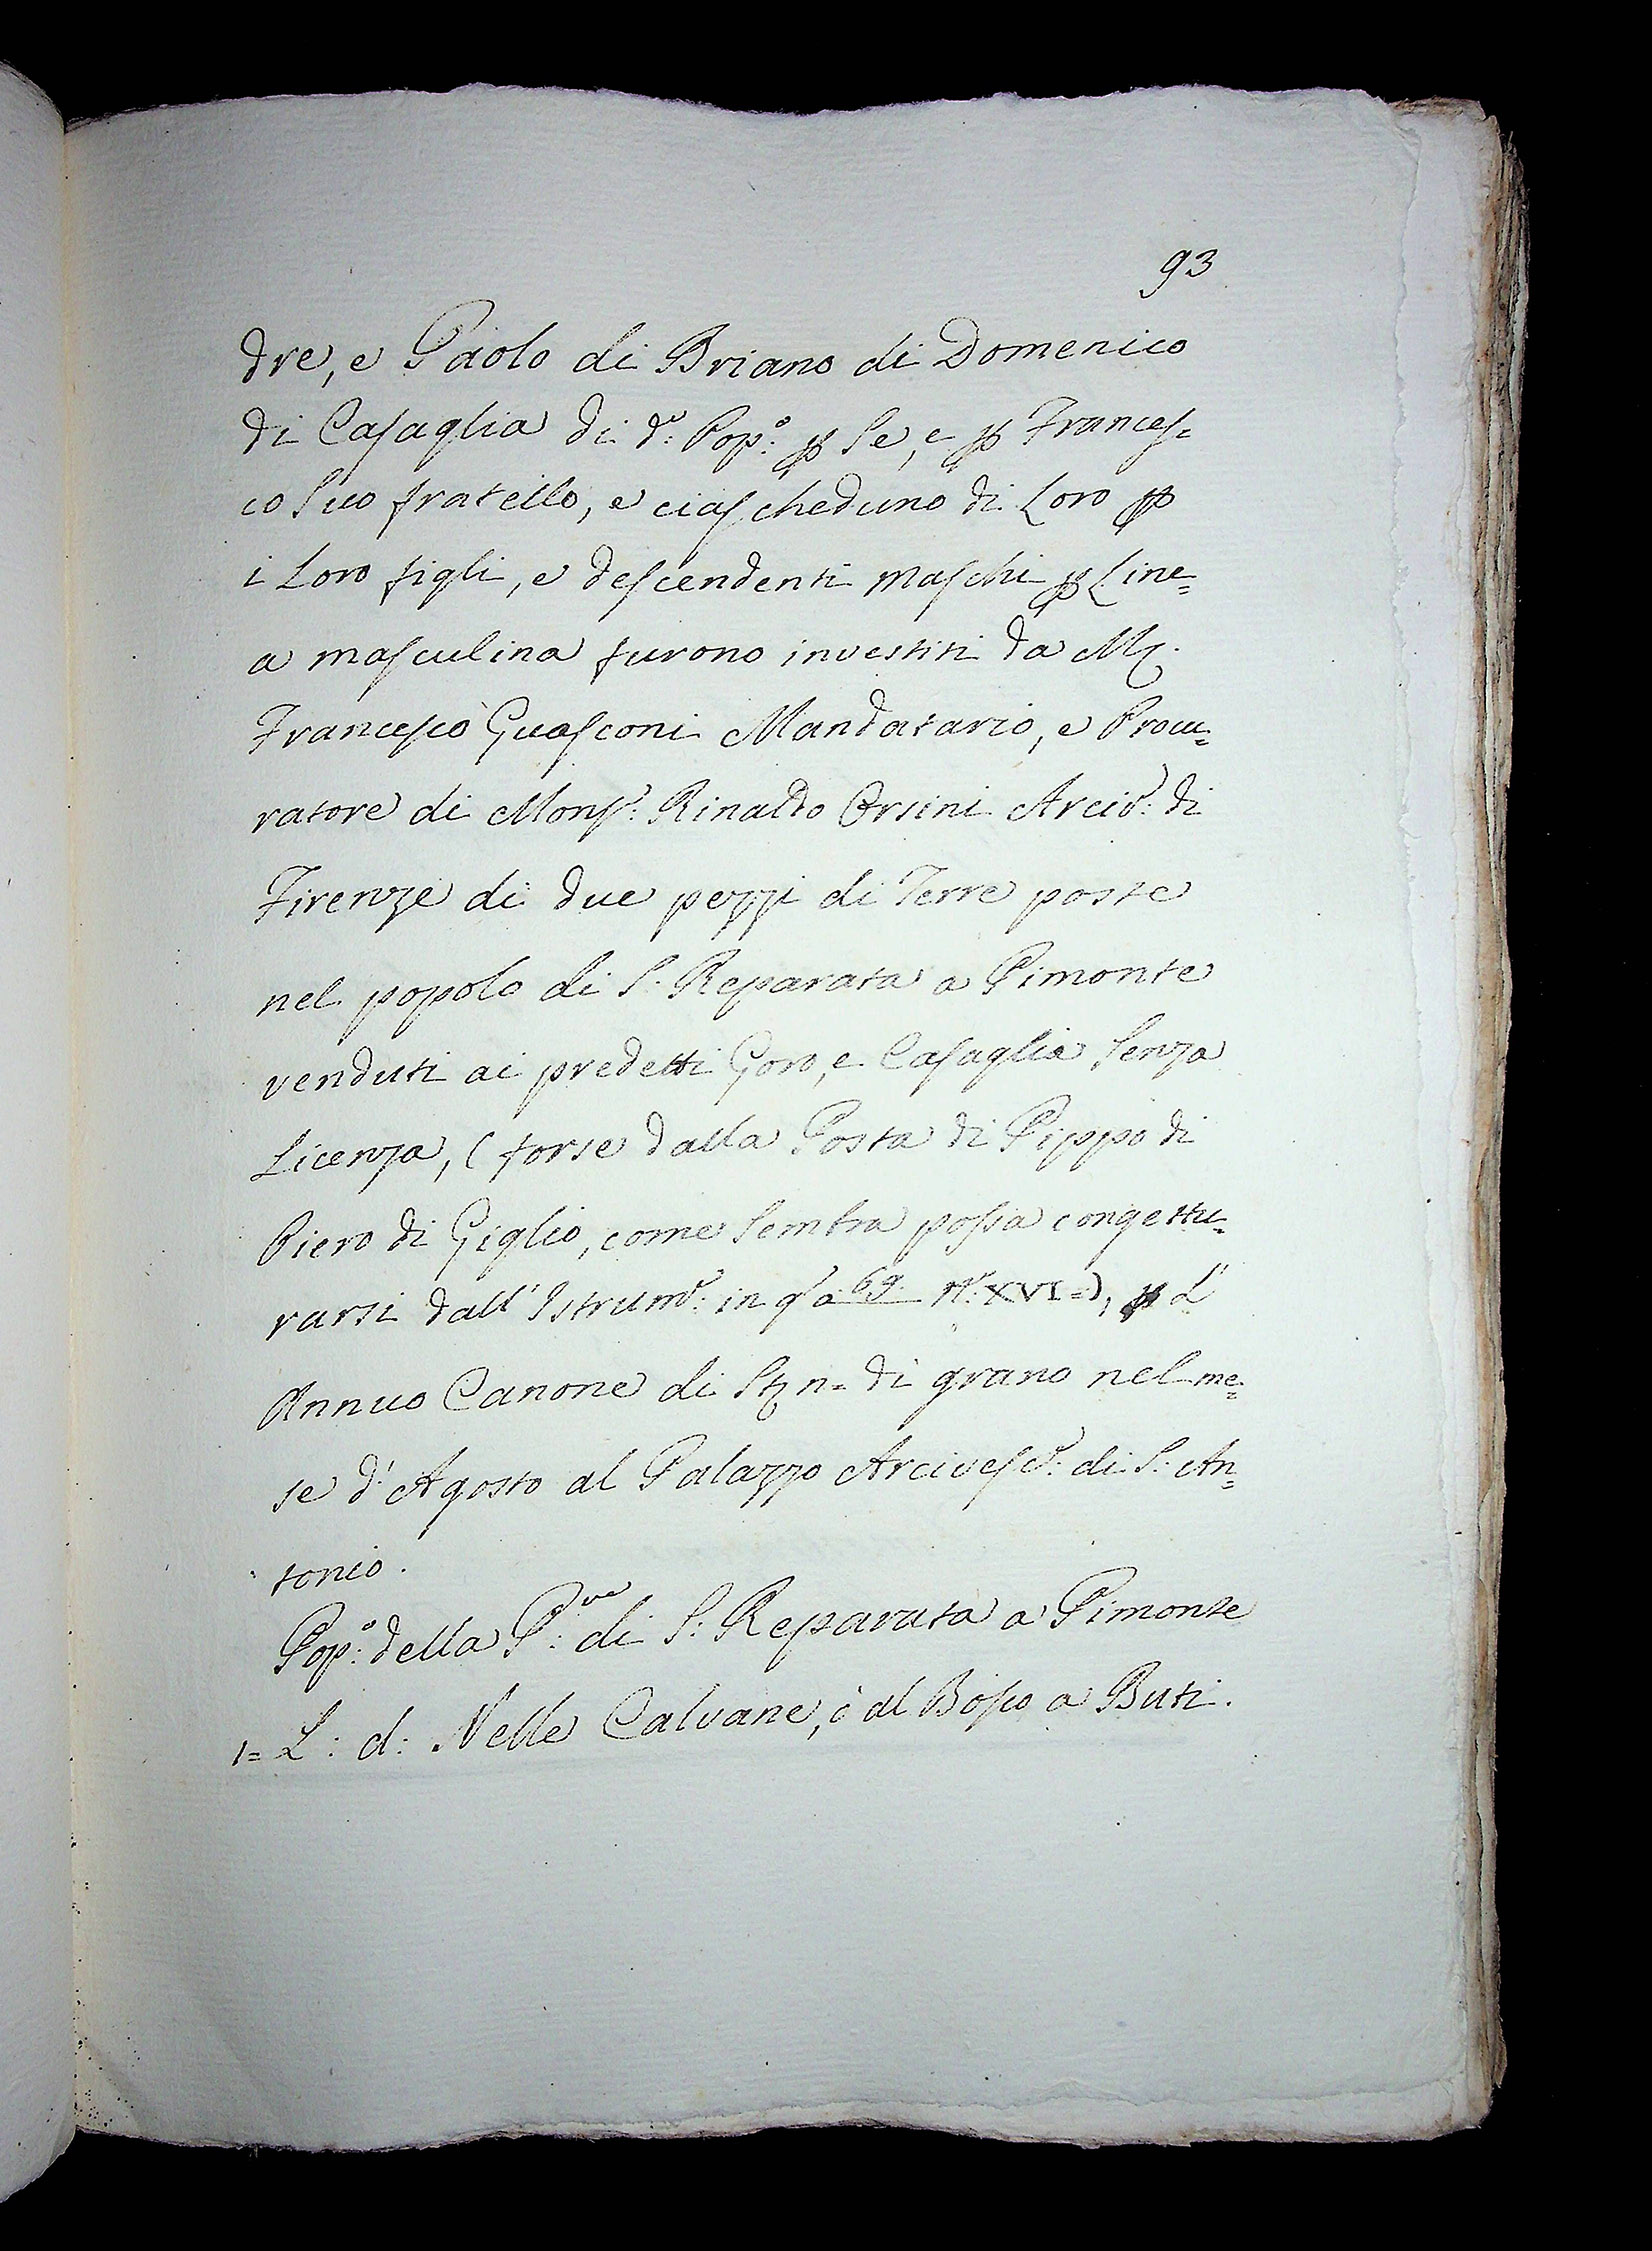 93
dre, e Paolo di Briano di Domenico
di Casaglia di d.º Pop.º ꝑ Se, e ꝑ Frances=
co Suo fratello, e ciascheduno di Loro ꝑ
i Loro figli, e descendenti maschi ꝑ Line=
a masculina furono investiti da M.
Francesco Guasconi Mandatario, e Procu=
ratore di Mons.r Rinaldo Orsini Arciv.º di
Firenze di due pezzi di Terre poste
nel popolo di S. Reparata a Pimonte
venduti ai predetti Goro, e Casaglia Senza
Licenza, (forse dalla Posta di Pippo di
Piero di Giglio, come Sembra possa congettu=
rarsi dall' Istrum.º in q.º a 69. N.º XVI=), ꝑ L'
Annuo Canone di St n= di grano nel me=
se d' Agosto al Palazzo Arcivesc.º di S: An=
tonio.
Pop.º della P.ve di S: Reparata a Pimonte
1= L: d: Nelle Calvane, ò al Bosco a Buti.